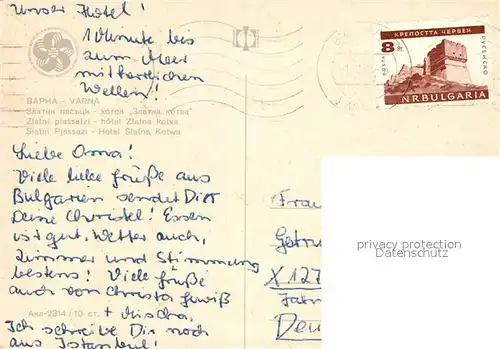 Unser Hotel!
1 Minute bis
zum Meer
mit herrlichen
Wellen!
ВАРНА - VARNA
Златни пясъци - хотел „Златна котва"
Zlatni piassatzi - hôtel Zlatna kotva
Slatni Pjassazi - Hotel Slatna Kotwa
Liebe Oma!
Viele liebe Grüße aus
Bulgarien sendet Dir
Deine Christel! Essen
ist gut, Wetter auch,
Zimmer und Stimmung
bestens! Viele Grüße
auch von Christa
+ Mischa.
Ich schreibe Dir noch
aus Istanbul!
Акл-2314/10 ст.
КРЕПОСТТА ЧЕРВЕН
8
ПОЩА
РУСЕНСКО
NRBULGARIA
Frau
Getru
X 127
Deu
privacy protection
Datenschutz